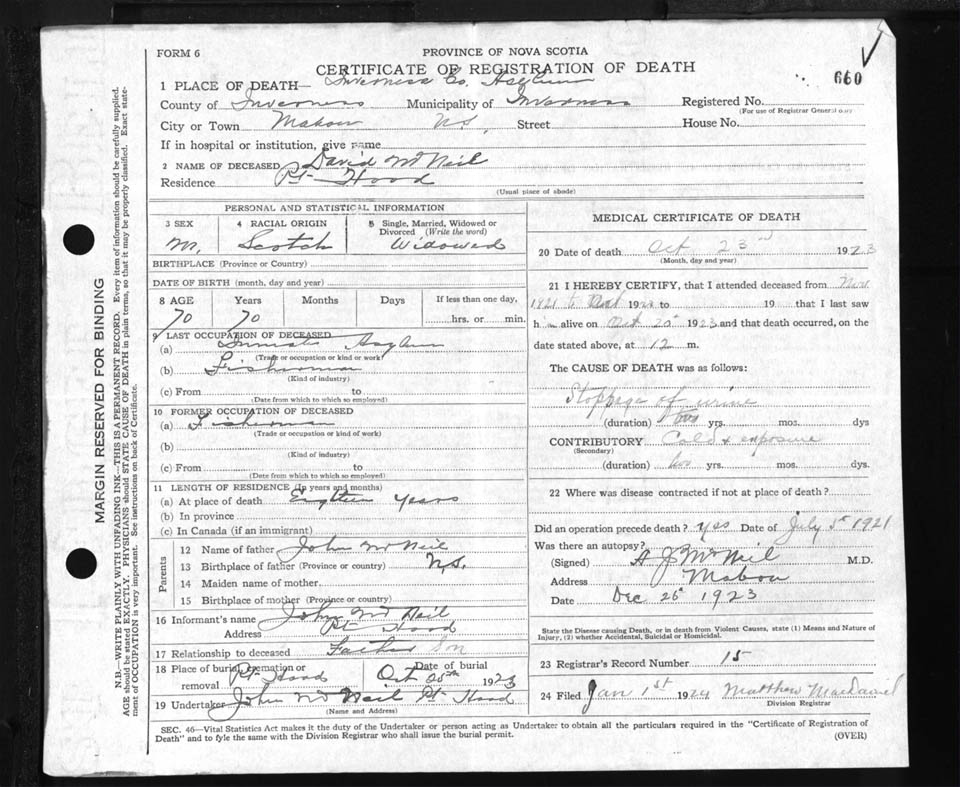 FORM 6
PROVINCE OF NOVA SCOTIA
CERTIFICATE OF REGISTRATION OF DEATH
660
1 PLACE OF DEATH— Inverness Co. Asylum
County of Inverness Municipality of Inverness Registered No.
(For use of Registrar General only)
City or Town Mabou N.S. Street House No.
If in hospital or institution, give name
2 NAME OF DECEASED David McNeil
Residence Pt Hood
(Usual place of abode)
PERSONAL AND STATISTICAL INFORMATION
3 SEX 4 RACIAL ORIGIN 5 Single, Married, Widowed or Divorced (Write the word)
M. Scotch Widowed
BIRTHPLACE (Province or Country)
DATE OF BIRTH (month, day and year)
8 AGE Years Months Days If less than one day,
70 70 hrs. or min.
9 LAST OCCUPATION OF DECEASED
(a) Inmate Asylum
(Trade or occupation or kind of work)
(b) Fisherman
(Kind of industry)
(c) From to
(Date from which to which so employed)
10 FORMER OCCUPATION OF DECEASED
(a) Fisherman
(Trade or occupation or kind of work)
(b)
(Kind of industry)
(c) From to
(Date from which to which so employed)
11 LENGTH OF RESIDENCE (In years and months)
(a) At place of death Eighteen years
(b) In province
(c) In Canada (if an immigrant)
Parents
12 Name of father John McNeil
13 Birthplace of father (Province or country) N.S.
14 Maiden name of mother
15 Birthplace of mother (Province or Country)
16 Informant's name John McNeil
Address Pt Hood
17 Relationship to deceased Father Son
18 Place of burial, cremation or removal Pt Hood Date of burial Oct 25th 1923
19 Undertaker John McNeil Pt Hood
(Name and Address)
MEDICAL CERTIFICATE OF DEATH
20 Date of death Oct 23rd 1923
(Month, day and year)
21 I HEREBY CERTIFY, that I attended deceased from Nov
1921 to Oct 192 to 19 that I last saw
him alive on Oct 20th 1923 and that death occurred, on the
date stated above, at 12 m.
The CAUSE OF DEATH was as follows:
Stoppage of urine
(duration) two yrs. mos. dys
CONTRIBUTORY Cold & exposure
(Secondary)
(duration) two yrs. mos. dys.
22 Where was disease contracted if not at place of death?
Did an operation precede death? yes Date of July 5th 1921
Was there an autopsy?
(Signed) A J McNeil M.D.
Address Mabou
Date Dec 26th 1923
State the Disease causing Death, or in death from Violent Causes, state (1) Means and Nature of
Injury, (2) whether Accidental, Suicidal or Homicidal.
23 Registrar's Record Number 15
24 Filed Jan 1st 1924 Matthew
Division Registrar
SEC. 46—Vital Statistics Act makes it the duty of the Undertaker or person acting as Undertaker to obtain all the particulars required in the "Certificate of Registration of
Death" and to fyle the same with the Division Registrar who shall issue the burial permit.
(OVER)
MARGIN RESERVED FOR BINDING
N.B.—WRITE PLAINLY WITH UNFADING INK—THIS IS A PERMANENT RECORD. Every item of information should be carefully supplied.
AGE should be stated EXACTLY. PHYSICIANS should STATE CAUSE OF DEATH in plain terms, so that it may be properly classified. Exact state-
ment of OCCUPATION is very important. See instructions on back of Certificate.